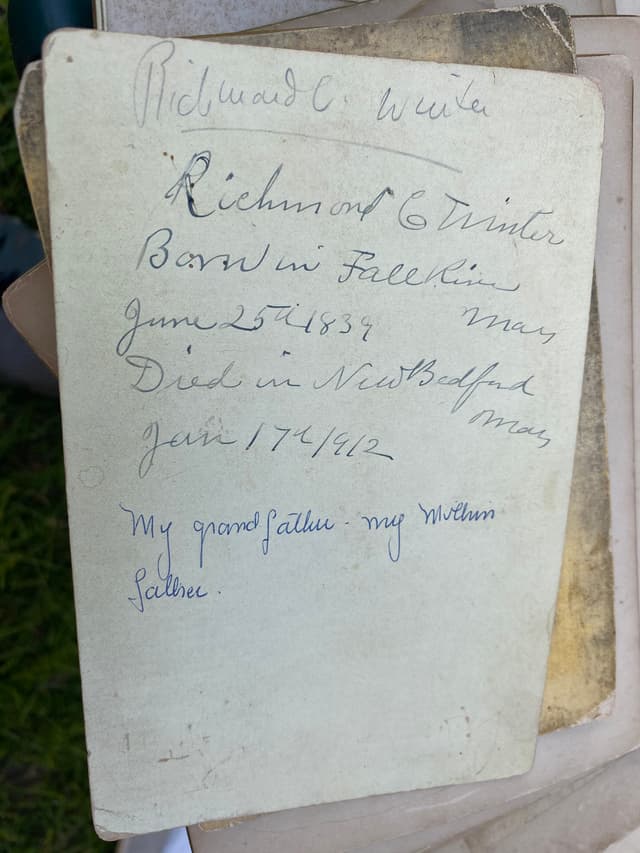 Richmond C. Winter
Richmond C Winter
Born in Fall River
June 25th 1839 Mass
Died in New Bedford
Mass
Jan 17th 1912
My grandfather - my Mothers
father.